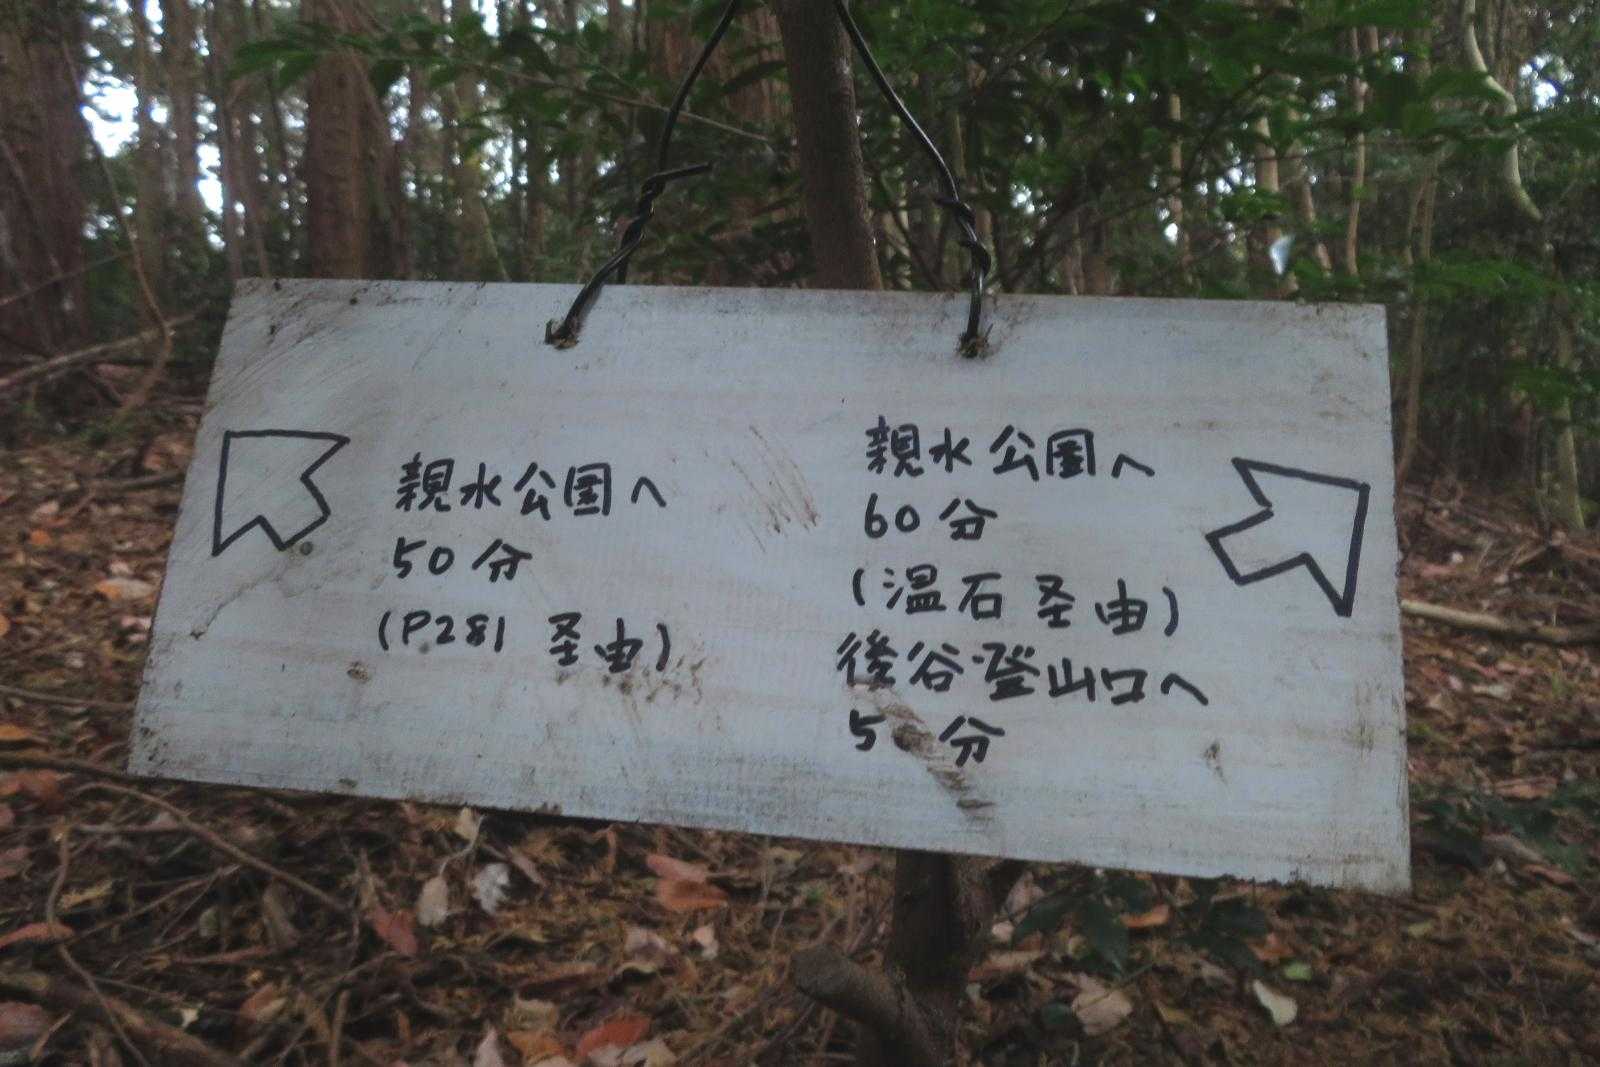 親水公園へ
50分
(P281 経由)
親水公園へ
60分
(温石 経由)
後谷登山口へ
分